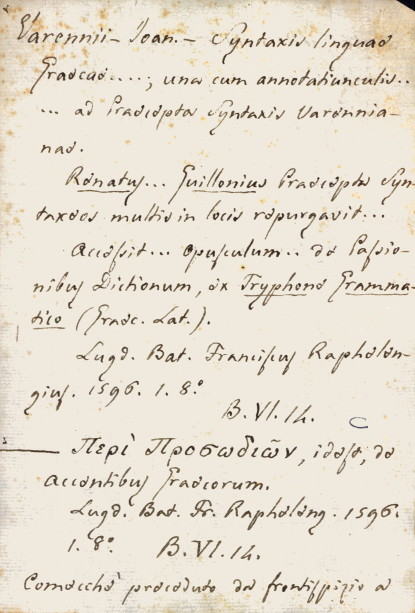 Varennii - Joan. - Syntaxis linguae
Graecae....; una cum annotatiunculis..
... ad Praecepta Syntaxis Varennia-
nae.
Renatus... Guillonius Praecepta Syn-
taxeos multis in locis repurgavit...
Accessit... opusculum.. de Passio-
nibus Dictionum, ex Tryphone Gramma-
tico (Graec. Lat.).
Lugd. Bat. Franciscus Raphelen-
gius. 1596. 1. 8.º
B. VI. 14.
Περὶ Προσωδιῶν, idest, de
Accentibus Graecorum.
Lugd. Bat. Fr. Rapheleng. 1596.
1. 8.º B. VI. 14.
Comecchè preceduto da frontispizio a